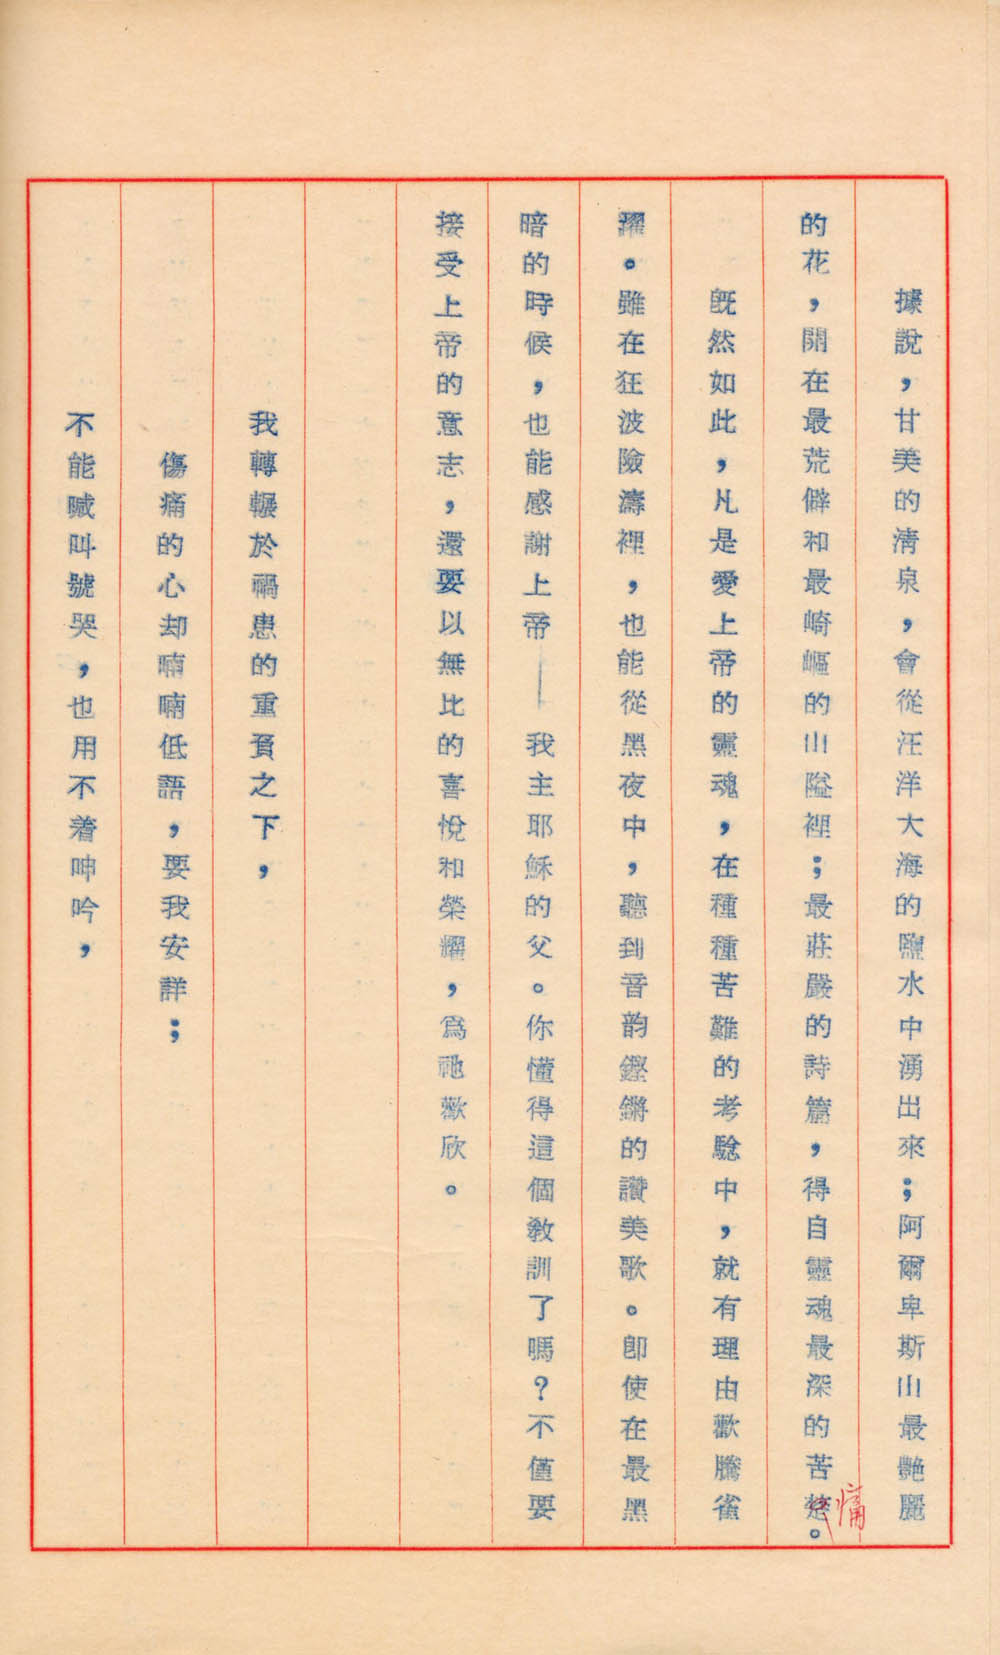 據說，甘美的清泉，會從汪洋大海的鹽水中湧出來；阿爾卑斯山最艷麗
的花，開在最荒僻和最崎嶇的山隘裡；最莊嚴的詩篇，得自靈魂最深的苦楚。
痛
既然如此，凡是愛上帝的靈魂，在種種苦難的考驗中，就有理由歡騰雀
躍。雖在狂波險濤裡，也能從黑夜中，聽到音韵鏗鏘的讚美歌。即使在最黑
暗的時候，也能感謝上帝——我主耶穌的父。你懂得這個敎訓了嗎？不僅要
接受上帝的意志，還要以無比的喜悅和榮耀，爲祂歡欣。
我轉輾於禍患的重負之下，
傷痛的心却喃喃低語，要我安詳；
不能喊叫號哭，也用不着呻吟，